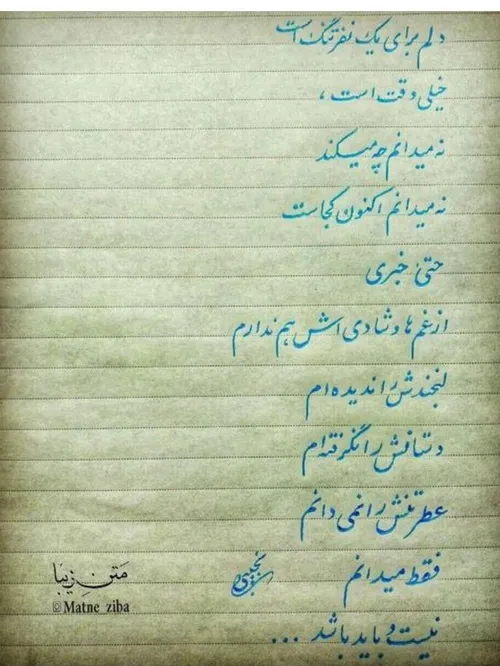 دلم برای یک نفر تنگ است
خیلی وقت است ،
نه میدانم چه میکند
نه میدانم اکنون کجاست
حتی خبری
از غم ها و شادی اش هم ندارم
لبخندش را ندیده ام
دستانش را نگرفته ام
عطر تنش را نمی دانم
فقط میدانم
نیست و باید باشد ...
متن زیبا
© Matne_ziba